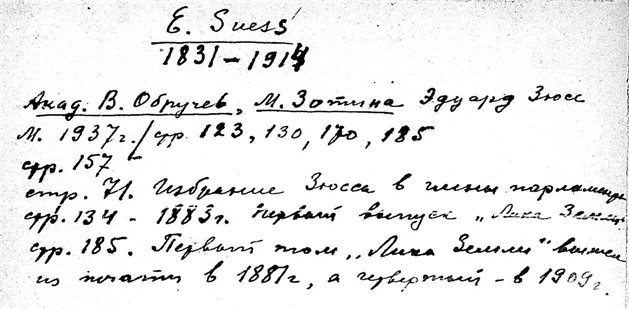 E. Suess
1831 – 1914
Акад. В. Обручев, М. Зотина Эдуард Зюсс
М. 1937г. / стр. 123, 130, 170, 185
стр. 157
стр. 71. Избрание Зюсса в члены парламента
стр. 134 - 1883г. первый выпуск „Лика Земли"
стр. 185. Первый том „Лика Земли" вышел
из печати в 1881г, а четвертый - в 1909г.